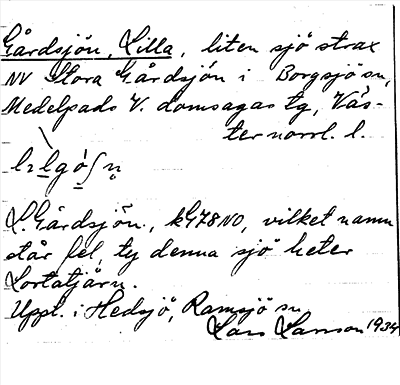 Gårdsjön, Lilla, liten sjö strax
NV Stora Gårdsjön i Borgsjö sn,
Medelpads V. domsagas tg, Väs-
ternorrl. l.
L. Gårdsjön, kG78NO, vilket namn
står fel, ty denna sjö heter
Lortatjärn.
Uppt. i Hedsjö, Ramsjö sn
Lars Larsson 1934